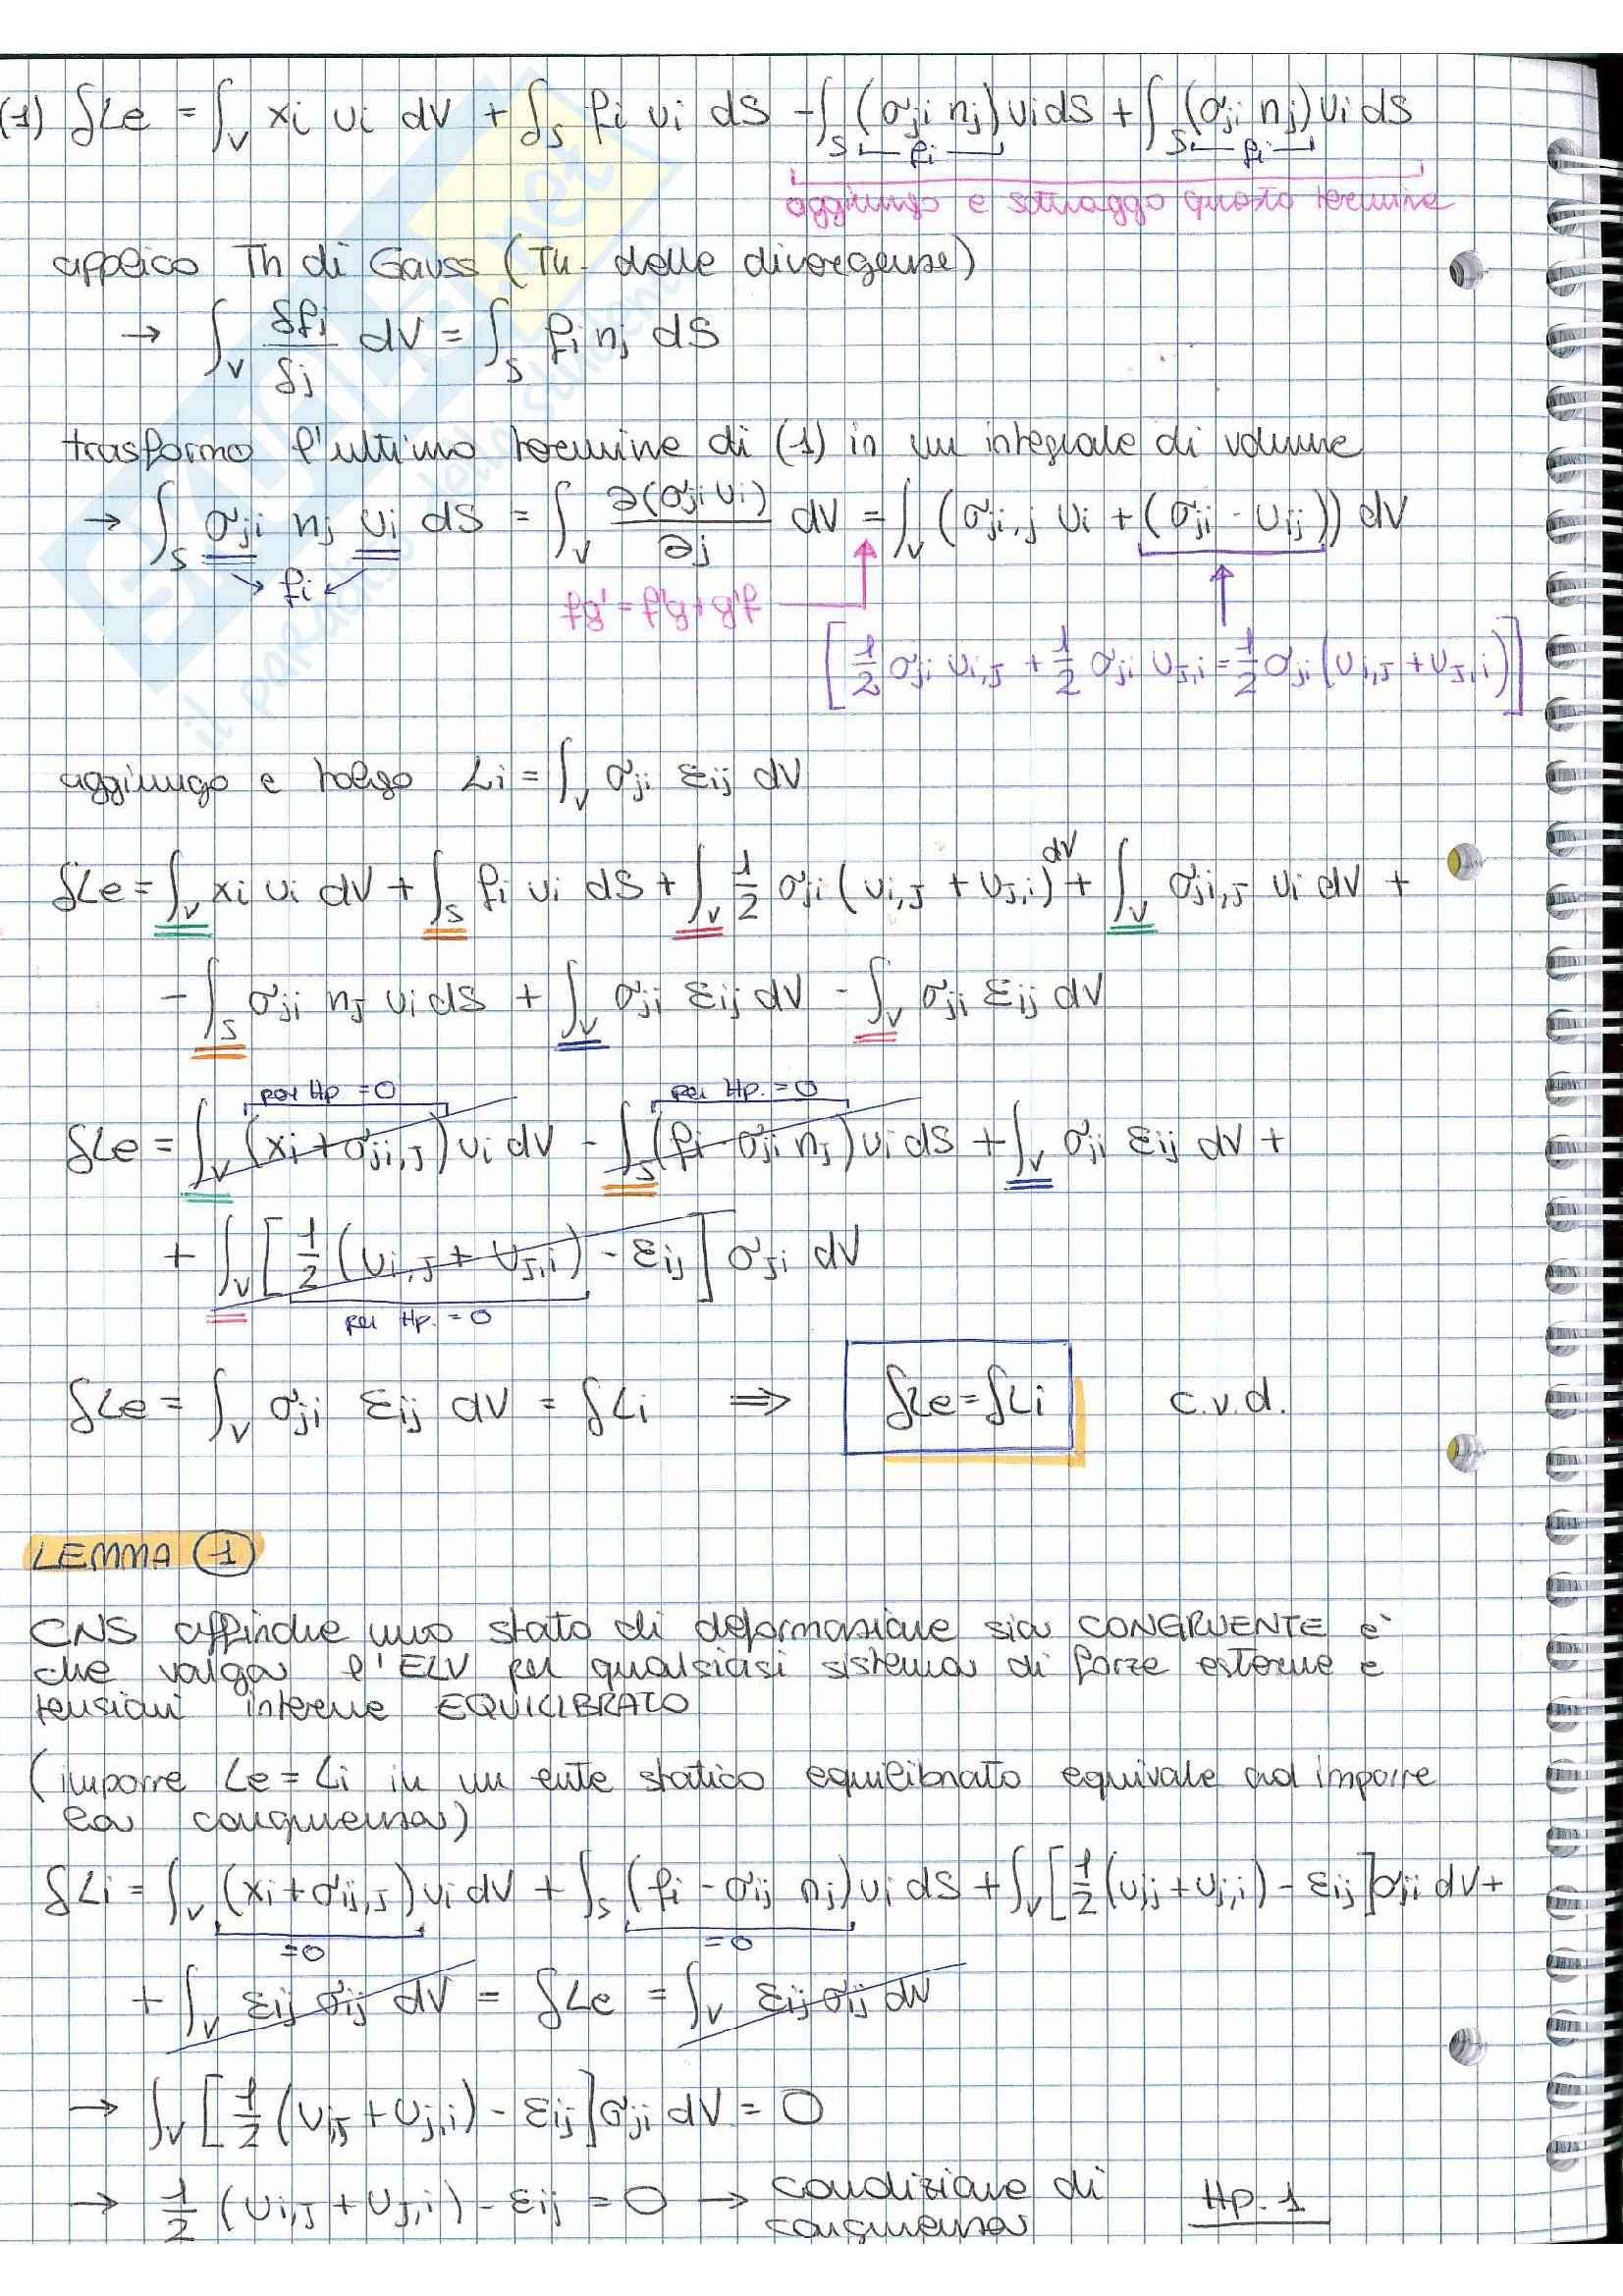 (1) δLe = ∫_V xi ui dV + ∫_S fi ui dS - ∫_S (σji nj) ui dS + ∫_S (σji nj) ui dS
fi fi
aggiungo e sottraggo questo termine
applico Th di Gauss (Th. delle divergenze)
→ ∫_V δfi/δj dV = ∫_S fi nj dS
trasformo l'ultimo termine di (1) in un integrale di volume
→ ∫_S σji nj ui dS = ∫_V ∂(σji ui)/∂j dV = ∫_V (σji,j ui + (σji - uij)) dV
fi
fg' = f'g + g'f
[1/2 σji ui,J + 1/2 σji uJ,i = 1/2 σji (ui,J + uJ,i)]
aggiungo e tolgo Li = ∫_V σji εij dV
δLe = ∫_V xi ui dV + ∫_S fi ui dS + ∫_V 1/2 σji (ui,J + uJ,i) dV + ∫_V σji,J ui dV +
- ∫_S σji nJ ui dS + ∫_V σji εij dV - ∫_V σji εij dV
per Hp = 0 per Hp. = 0
δLe = ∫_V (xi + σji,J) ui dV - ∫_S (fi - σji nJ) ui dS + ∫_V σji εij dV +
+ ∫_V [1/2 (ui,J + uJ,i) - εij] σJi dV
per Hp. = 0
δLe = ∫_V σji εij dV = δLi ⇒ δLe = δLi c.v.d.
LEMMA (1)
CNS affinche uno stato di deformazione sia CONGRUENTE è
che valga l'ELV per qualsiasi sistema di forze esterne e
tensioni interne EQUILIBRATO
(imporre Le = Li in un ente statico equilibrato equivale ad imporre
la congruenza)
δLi = ∫_V (xi + σij,J) ui dV + ∫_S (fi - σij nj) ui dS + ∫_V [1/2 (uij + uj,i) - εij] σji dV +
= 0 = 0
+ ∫_V εij σij dV = δLe = ∫_V εij σij dV
→ ∫_V [1/2 (uiJ + uj,i) - εij] σji dV = 0
→ 1/2 (ui,J + uJ,i) - εij = 0 → condizione di
congruenza
Hp. 1
il paradiso dello studente